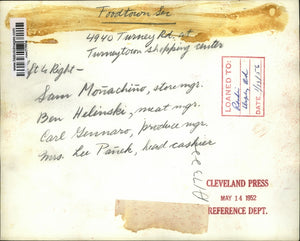 Foodtown Ser
4940 Turney Rd. at
Turneytown shopping center
ft to Right -
Sam Monachino, store mgr.
Ben Helinski, meat mgr.
Carl Gennaro, produce mgr.
Mrs. Lee Panek, head cashier
LOANED TO:
DATE
CLEVELAND PRESS
MAY 14 1952
REFERENCE DEPT.